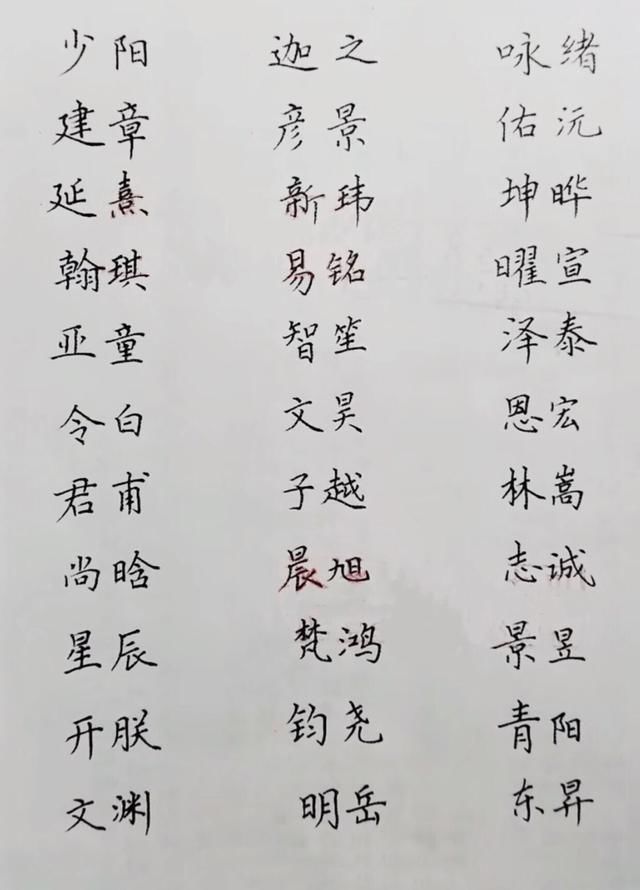 少阳 迦之 咏绪
建章 彦景 佑沅
延熹 新玮 坤晔
翰琪 易铭 曜宣
亚童 智笙 泽泰
令白 文昊 恩宏
君甫 子越 林嵩
尚晗 晨旭 志诚
星辰 梵鸿 景昱
开朕 钧尧 青阳
文渊 明岳 东昇